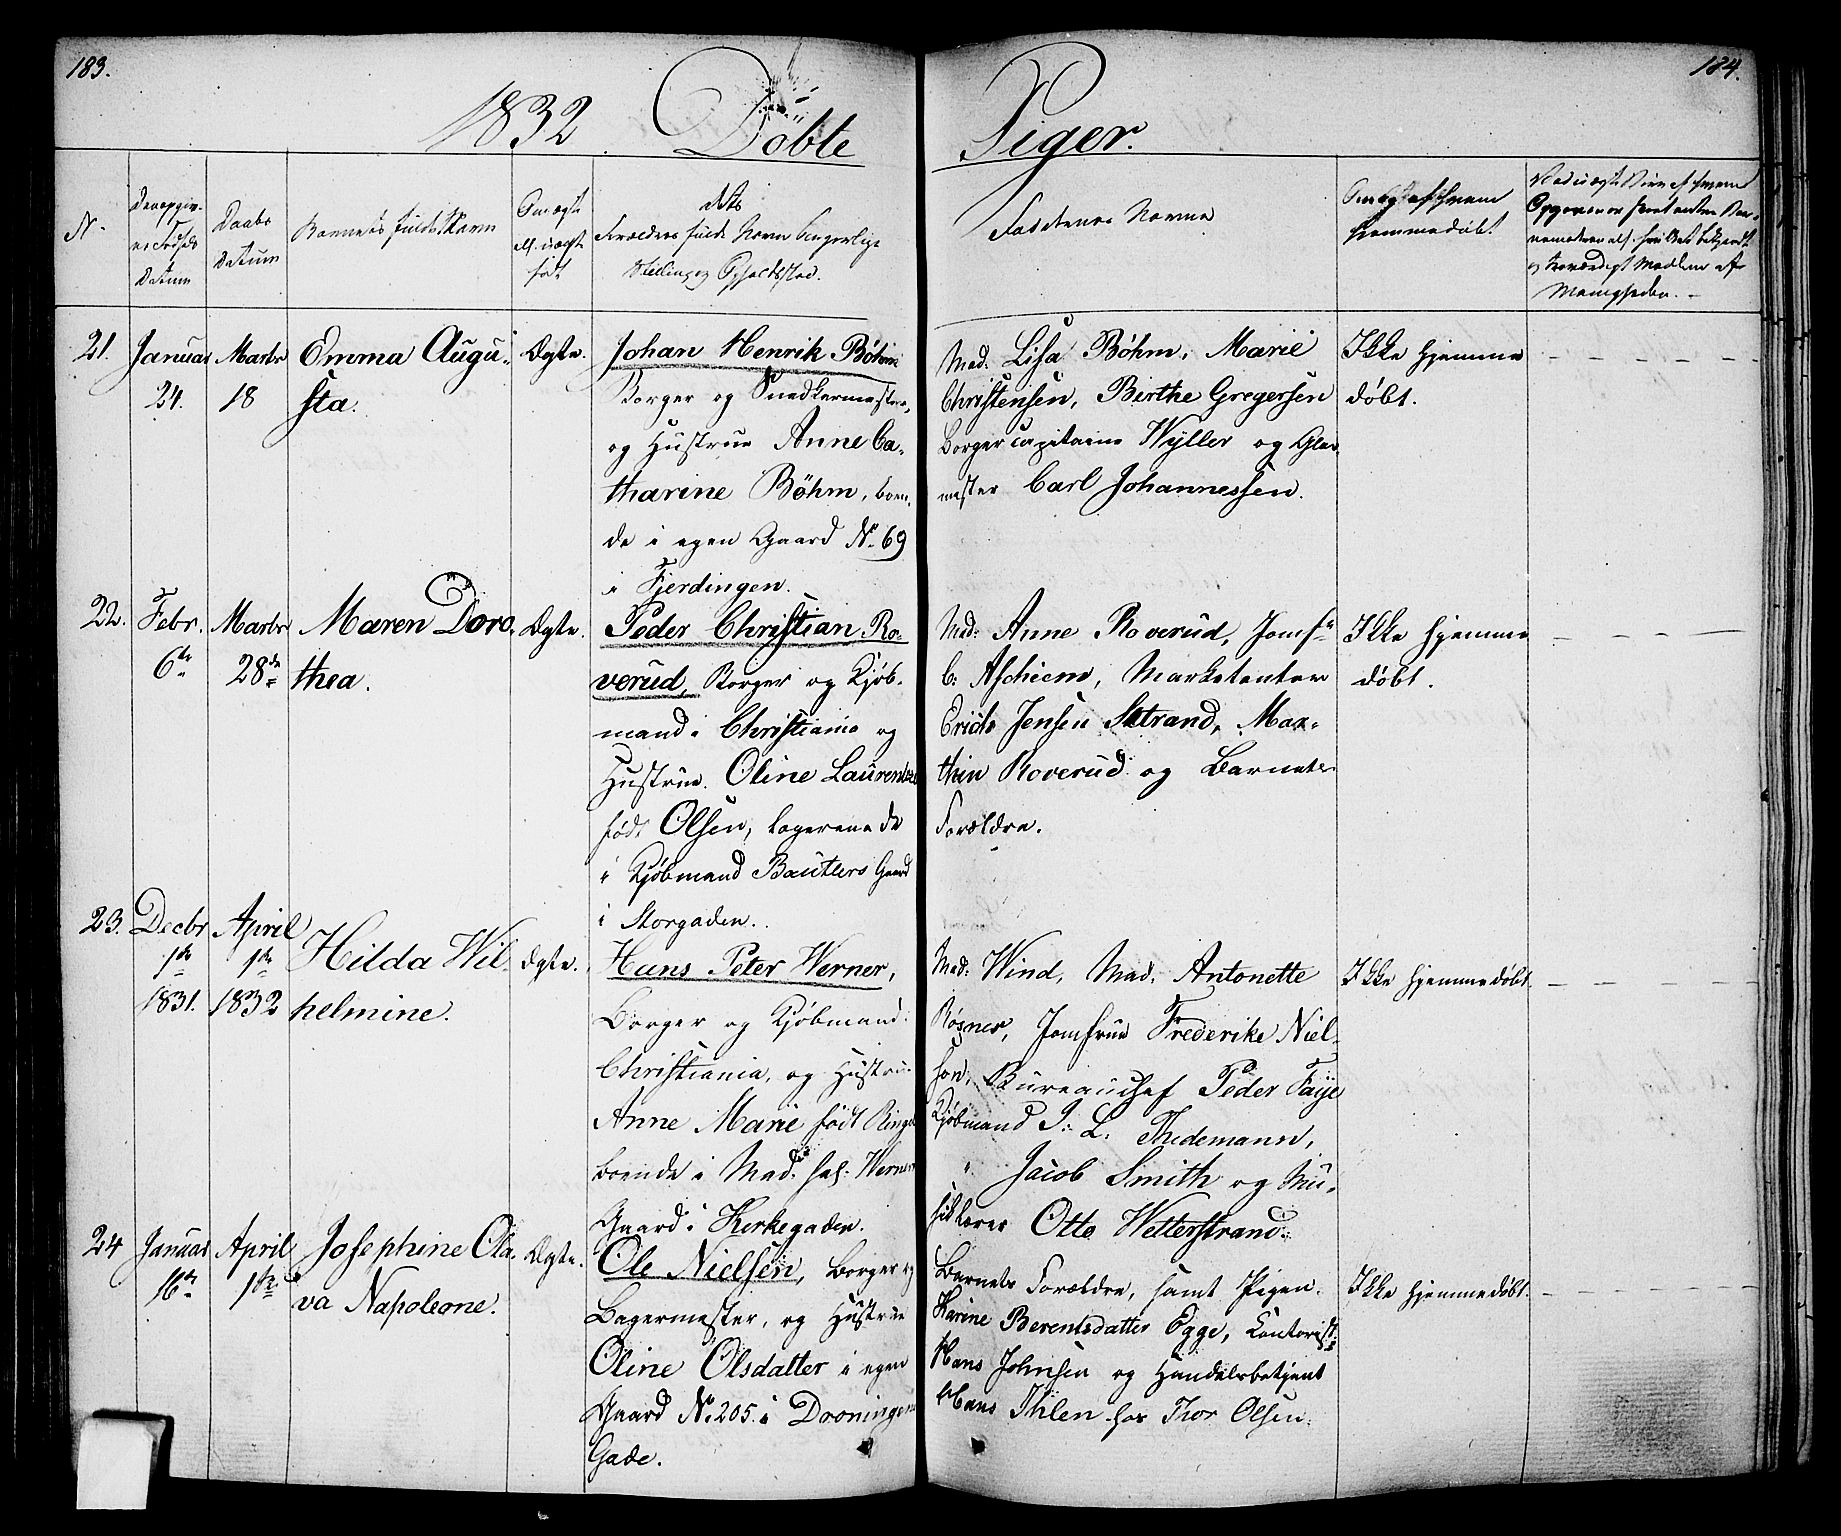 183.
184.
1832 Døbte Piger.
N.
Daabs
Datum
Barnets fulde Navn
Faddernes Navne
21.
Januar
24.
Marts
18
Emma Augu-
sta.
Ægte.
Johan Henrik Böhm
Borger og Snedkermester,
og Hustrue Anne Ca-
tharine Böhm, boen-
de i egen Gaard No 69
i Fjerdingen.
Mad. Lisa Böhm, Marie
Christensen, Birthe Gregersen
Borgercapitaine Wyller og Glar-
mester Carl Johannessen.
Ikke hjemme
døbt.
22.
Febr.
6te
Marts
28de
Maren Doro-
thea.
Ægte.
Peder Christian Ro-
verud, Borger og Kjøb-
mand i Christiania og
Hustrue Oline Laurentze
født Olsen, logerende
i Kjøbmand Bautlers Gaard
i Storgaden.
Mad: Anne Roverud, Jomfr
C. Aschiem, Marketenter
Erich Jensen Strand, Mar-
thin Roverud og Barnets
Forældre.
Ikke hjemme
døbt.
23.
Decbr
1te
1831.
April
1te
1832
Hilda Wil-
helmine.
Ægte.
Hans Peter Werner,
Borger og Kjøbmand i
Christiania, og Hustrue
Anne Marie født
boende i Mad. sal. Werners
Gaard i Kirkegaden.
Mad: Wind, Mad. Antonette
Røsner, Jomfrue Frederike Niel-
son, Bureauchef Peder Faye
Kjøbmand J. L. Thidemann,
" Jacob Smith og Mu-
siklærer Otto Wetterstrand.
Ikke hjemmedøbt.
24
Januar
16de
April
1te
Josephine Ola-
va Napoleone.
Ægte.
Ole Nielsen, Borger og
Bagermester, og Hustrue
Oline Olsdatter i egen
Gaard No 205 i Droningens
Gade.
Barnets Forældre, samt Pigen
Karine Berentsdatter Egge, Contorist
Hans Johnsen og Handelsbetjent
Hans Ihlen hos Thor Olsen.
Ikke hjemmedøbt.